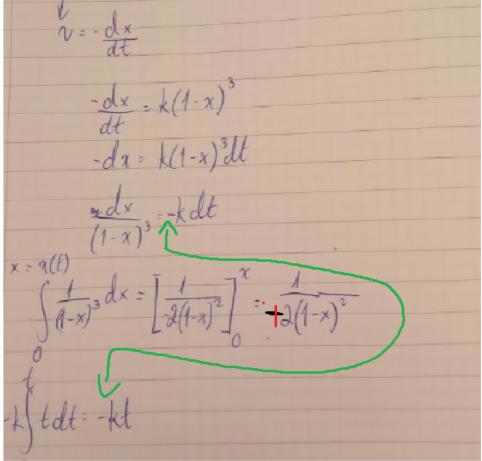 v = - dx/dt
-dx/dt = k(1-x)^3
-dx = k(1-x)^3 dt
dx/(1-x)^3 = -k dt
x = x(t)
∫_0 1/(1-x)^3 dx = [1/-2(1-x)^2]_0^x = 1/+2(1-x)^2
-k ∫^t t dt = -kt